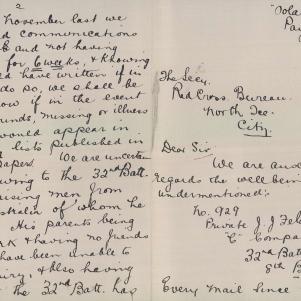 2
November last we
d communications
& and not having
for 6 weeks, & knowing
ld have written if in
do so, we shall be
now if in the event
unds, missing or illness
would appear in
lists published in
apers. We are uncertain
wing to the 32nd Batt.
using men from
stralia of whom he
His parents being
RK & having no friends
have been unable to
iry, & also having
the 32nd Batt. has
"Oola
Pa
The Secy.
Red Cross Bureau.
North Tce.
City.
Dear Sir,
We are anx
regards the well bein
undermentioned:-
No. 929
Private J. J. Fel
"C" Compa
32nd Batt
8th B
Every Mail since